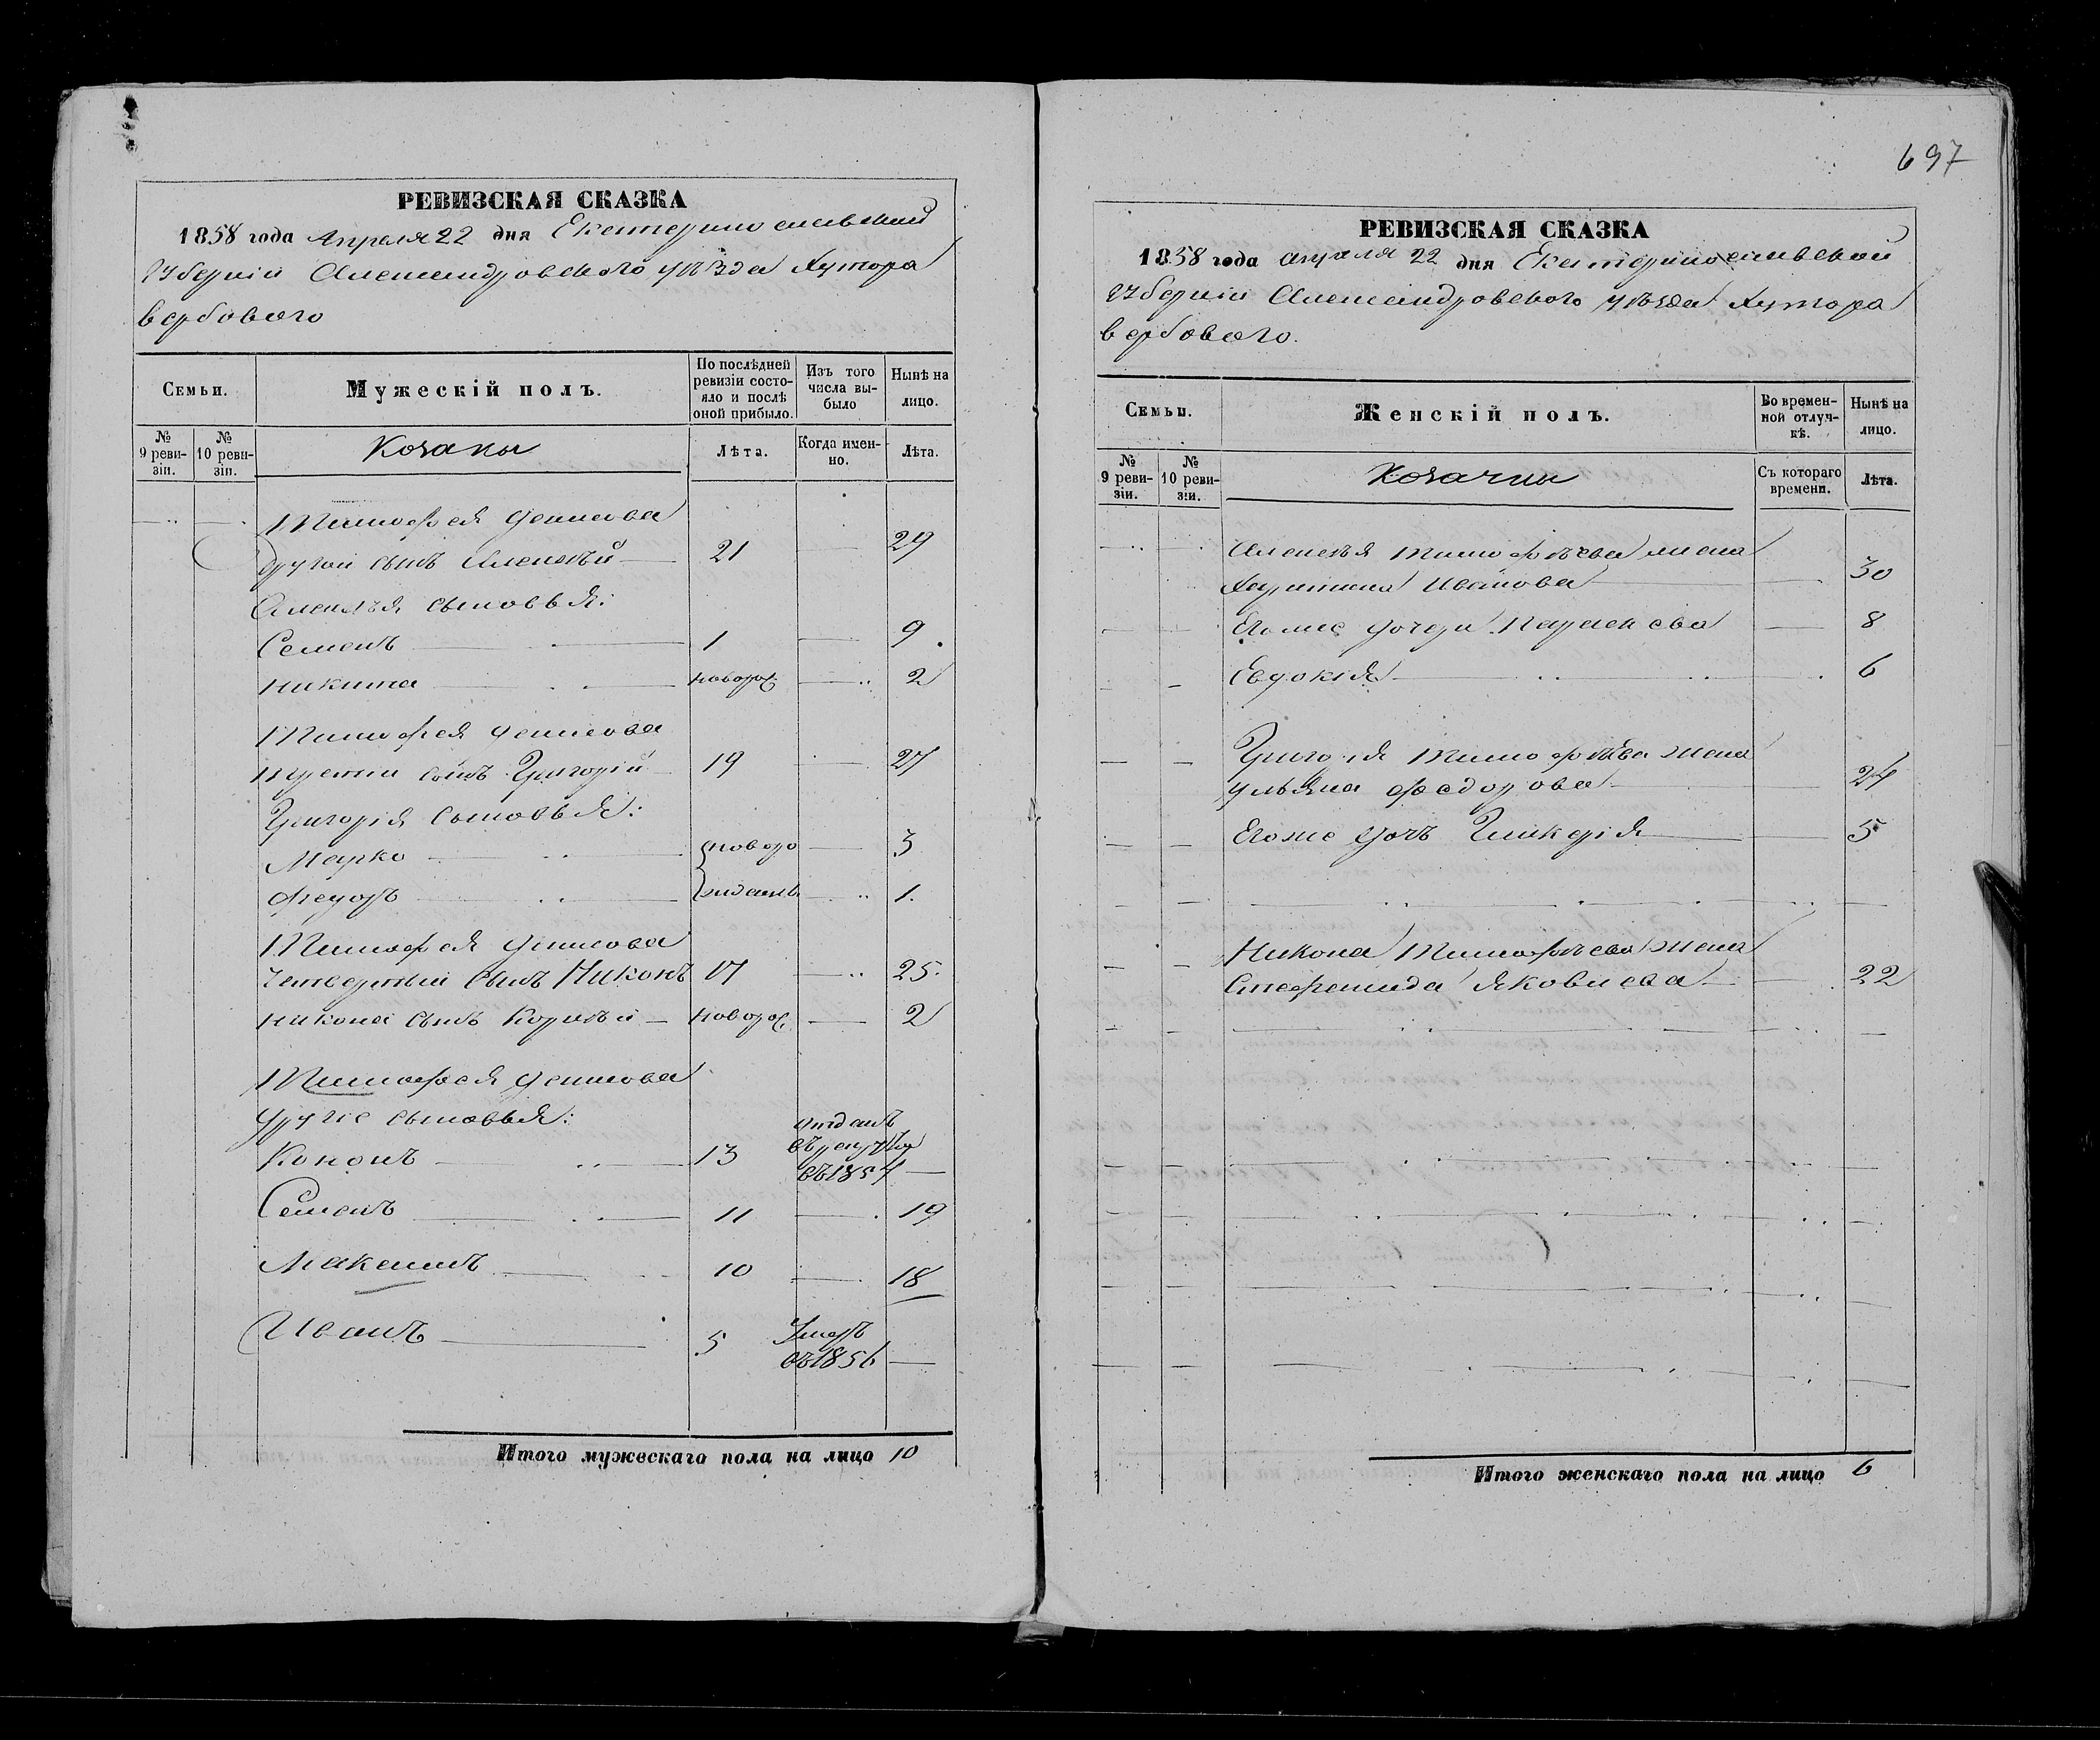 РЕВИЗСКАЯ СКАЗКА
1858 года Апреля 22 дня Екатеринославской
Губерніи Александровского уѣзда Хутора
Вербового
Семьи.
Мужескій полъ.
По послѣдней ревизіи состо-
яло и послѣ
оной прибыло.
Изъ того
числа вы-
было
Нынѣ на
лицо.
№
9 реви-
зіи.
№
10 реви-
зіи.
Козаки
Лѣта.
Когда имен-
но.
Лѣта.
Тимофея Денисова
другой сынъ Алексѣй 21 29
Алексѣя сыновья:
Семенъ 1 9
Никита новорож. 2
Тимофея Денисова
третий сынъ Григорій 19 27
Григорія сыновья:
Марко новоро 3
Федоръ жденъ 1.
Тимофея Денисова
четвертый сынъ Никонъ 17 25.
Никона сынъ Корнѣй новорож. 2
Тимофея Денисова
другіе сыновья:
отданъ
Кононъ 13 въ рекруты
въ 1854
Семенъ 11 19
Максимъ 10 18
Иванъ 5 Умеръ
въ 1856
Итого мужескаго пола на лицо 10
697
РЕВИЗСКАЯ СКАЗКА
1858 года апреля 22 дня Екатеринославской
Губерніи Александровского уѣзда Хутора
Вербового.
Семьи.
Женскій полъ.
Во времен-
ной отлуч-
кѣ.
Нынѣ на
лицо.
№
9 реви-
зіи.
№
10 реви-
зіи.
Козачки
Съ котораго
времени.
Лѣта.
Алексѣя Тимофѣева жена
Харитина Иванова 30
Егоже дочери 8
Евдокія 6
Григорія Тимофѣева жена
Ульяна Федорова 24
Егоже дочь Гликерія 5
Никона Тимофѣева жена
Стефанида Яковлева 22
Итого женскаго пола на лицо 6